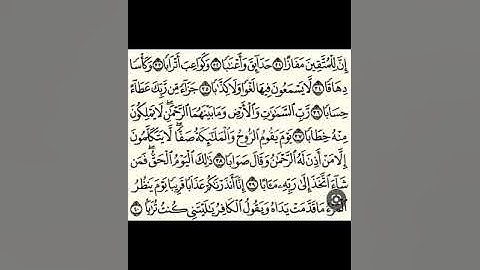 إِنَّ لِلْمُتَّقِينَ مَفَازًا ٣١ حَدَآئِقَ وَأَعْنَٰبًا ٣٢ وَكَوَاعِبَ أَتْرَابًا ٣٣ وَكَأْسًا
دِهَاقًا ٣٤ لَّا يَسْمَعُونَ فِيهَا لَغْوًا وَلَا كِذَّٰبًا ٣٥ جَزَآءً مِّن رَّبِّكَ عَطَآءً
حِسَابًا ٣٦ رَّبِّ ٱلسَّمَٰوَٰتِ وَٱلْأَرْضِ وَمَا بَيْنَهُمَا ٱلرَّحْمَٰنِ لَا يَمْلِكُونَ
مِنْهُ خِطَابًا ٣٧ يَوْمَ يَقُومُ ٱلرُّوحُ وَٱلْمَلَٰٓئِكَةُ صَفًّا لَّا يَتَكَلَّمُونَ
إِلَّا مَنْ أَذِنَ لَهُ ٱلرَّحْمَٰنُ وَقَالَ صَوَابًا ٣٨ ذَٰلِكَ ٱلْيَوْمُ ٱلْحَقُّ فَمَن
شَآءَ ٱتَّخَذَ إِلَىٰ رَبِّهِۦ مَـَٔابًا ٣٩ إِنَّآ أَنذَرْنَٰكُمْ عَذَابًا قَرِيبًا يَوْمَ يَنظُرُ
ٱلْمَرْءُ مَا قَدَّمَتْ يَدَاهُ وَيَقُولُ ٱلْكَافِرُ يَٰلَيْتَنِى كُنتُ تُرَٰبًۢا ٤٠